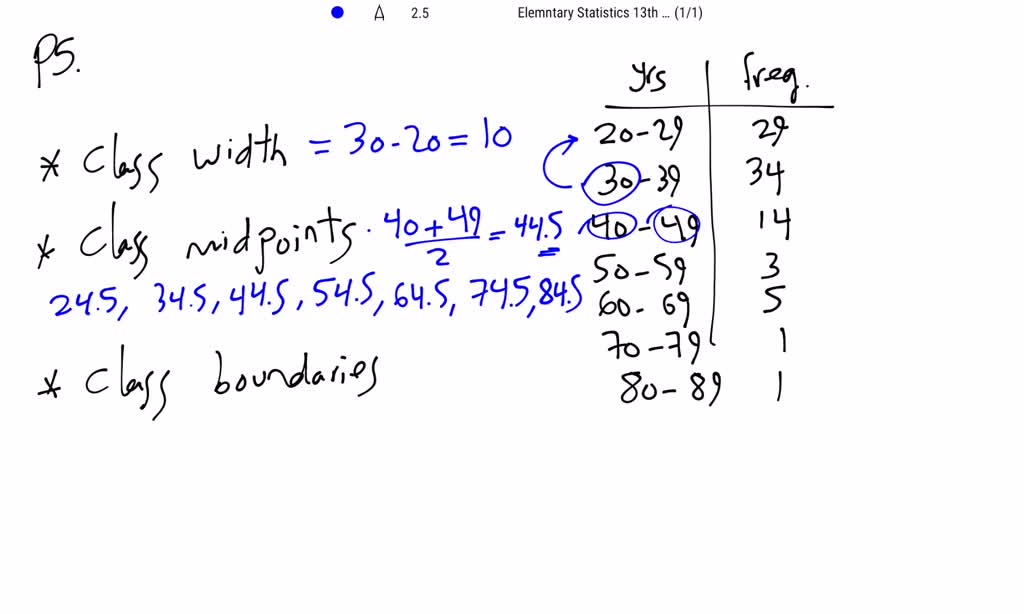 2.5 Elemntary Statistics 13th ... (1/1)
P5.
yrs freq.
* Class width = 30-20 = 10
* Class midpoints. 40+49/2 = 44.5
24.5, 34.5, 44.5, 54.5, 64.5, 74.5, 84.5
* Class boundaries
20-29 29
30-39 34
40-49 14
50-59 3
60-69 5
70-79 1
80-89 1